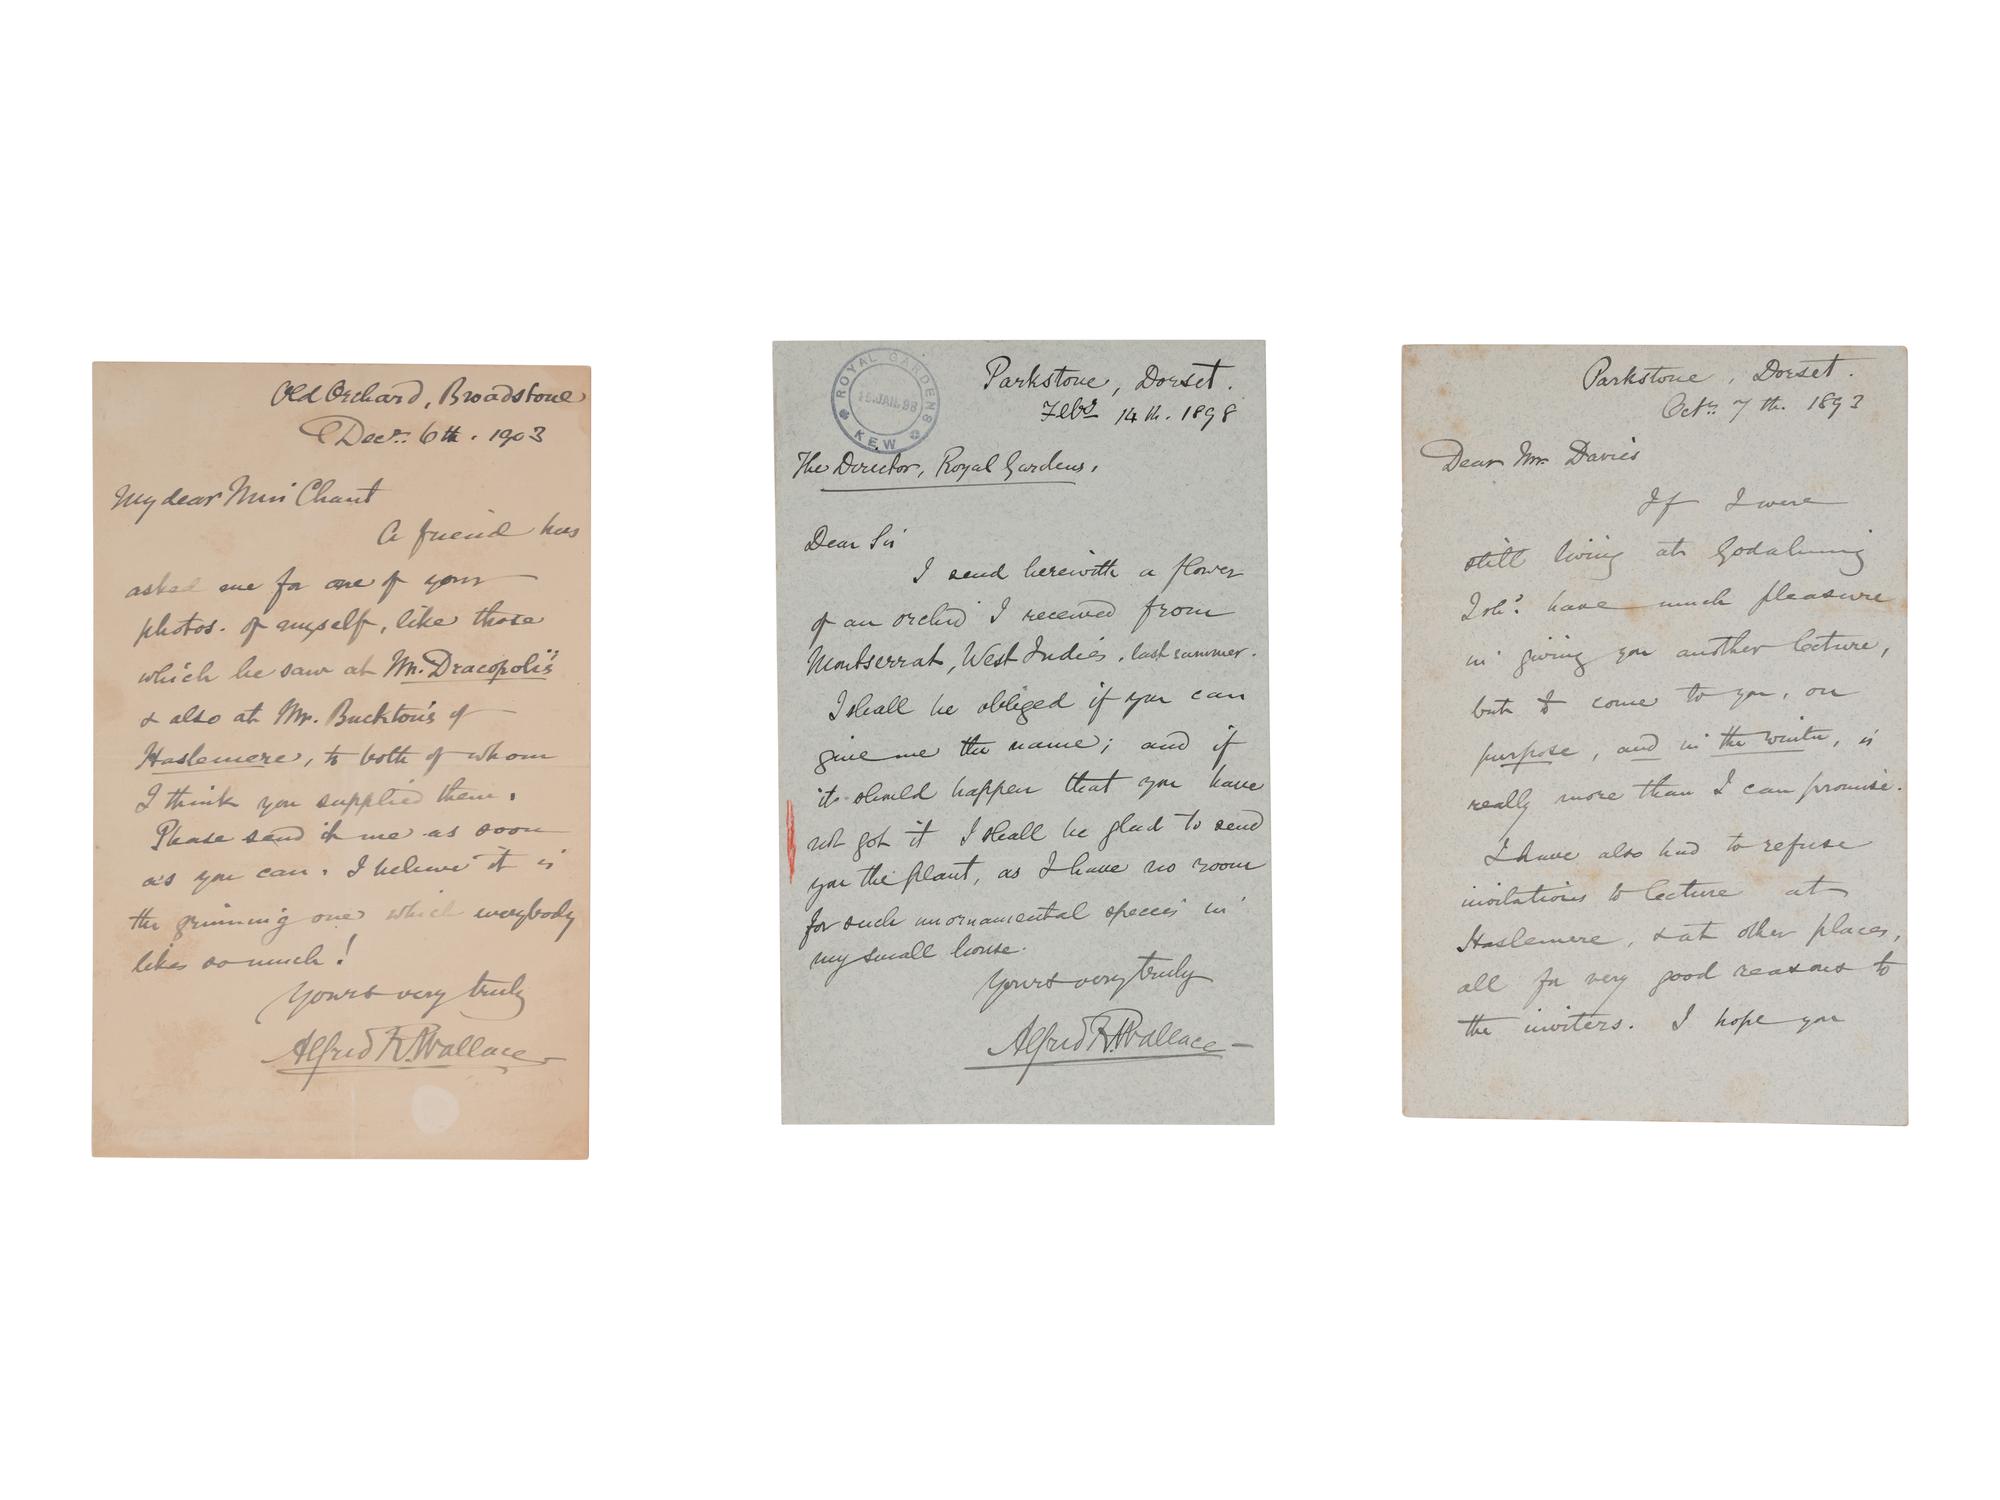 Old Orchard, Broadstone
Decr. 6th. 1903
My dear Miss Chant
A friend has
asked me for one of your
photos. of myself, like those
which he saw at Mr. Dracopoli's
& also at Mr. Buckton's of
Haslemere, to both of whom
I think you supplied them.
Please send it me as soon
as you can. I believe it is
the grinning one which everybody
likes so much!
Yours very truly
Alfred R. Wallace
ROYAL GARDENS
KEW
Parkstone, Dorset.
14th. 1898
The Director, Royal Gardens.
Dear Sir
I send herewith a flower
of an orchid I received from
Montserrat, West Indies, last summer.
I shall be obliged if you can
give me the name; and if
it should happen that you have
not got it I shall be glad to send
you the plant, as I have no room
for such unornamental species in
my small house.
Yours very truly
Alfred R. Wallace
Parkstone, Dorset.
Octr. 7th. 1893
Dear Mr. Davies
If I were
still living at Godalming
I shd. have much pleasure
in giving you another lecture,
but to come to you, on
purpose, and in the winter, is
really more than I can promise.
I have also had to refuse
invitations to lecture at
Haslemere, & at other places,
all for very good reasons to
the inviters. I hope you